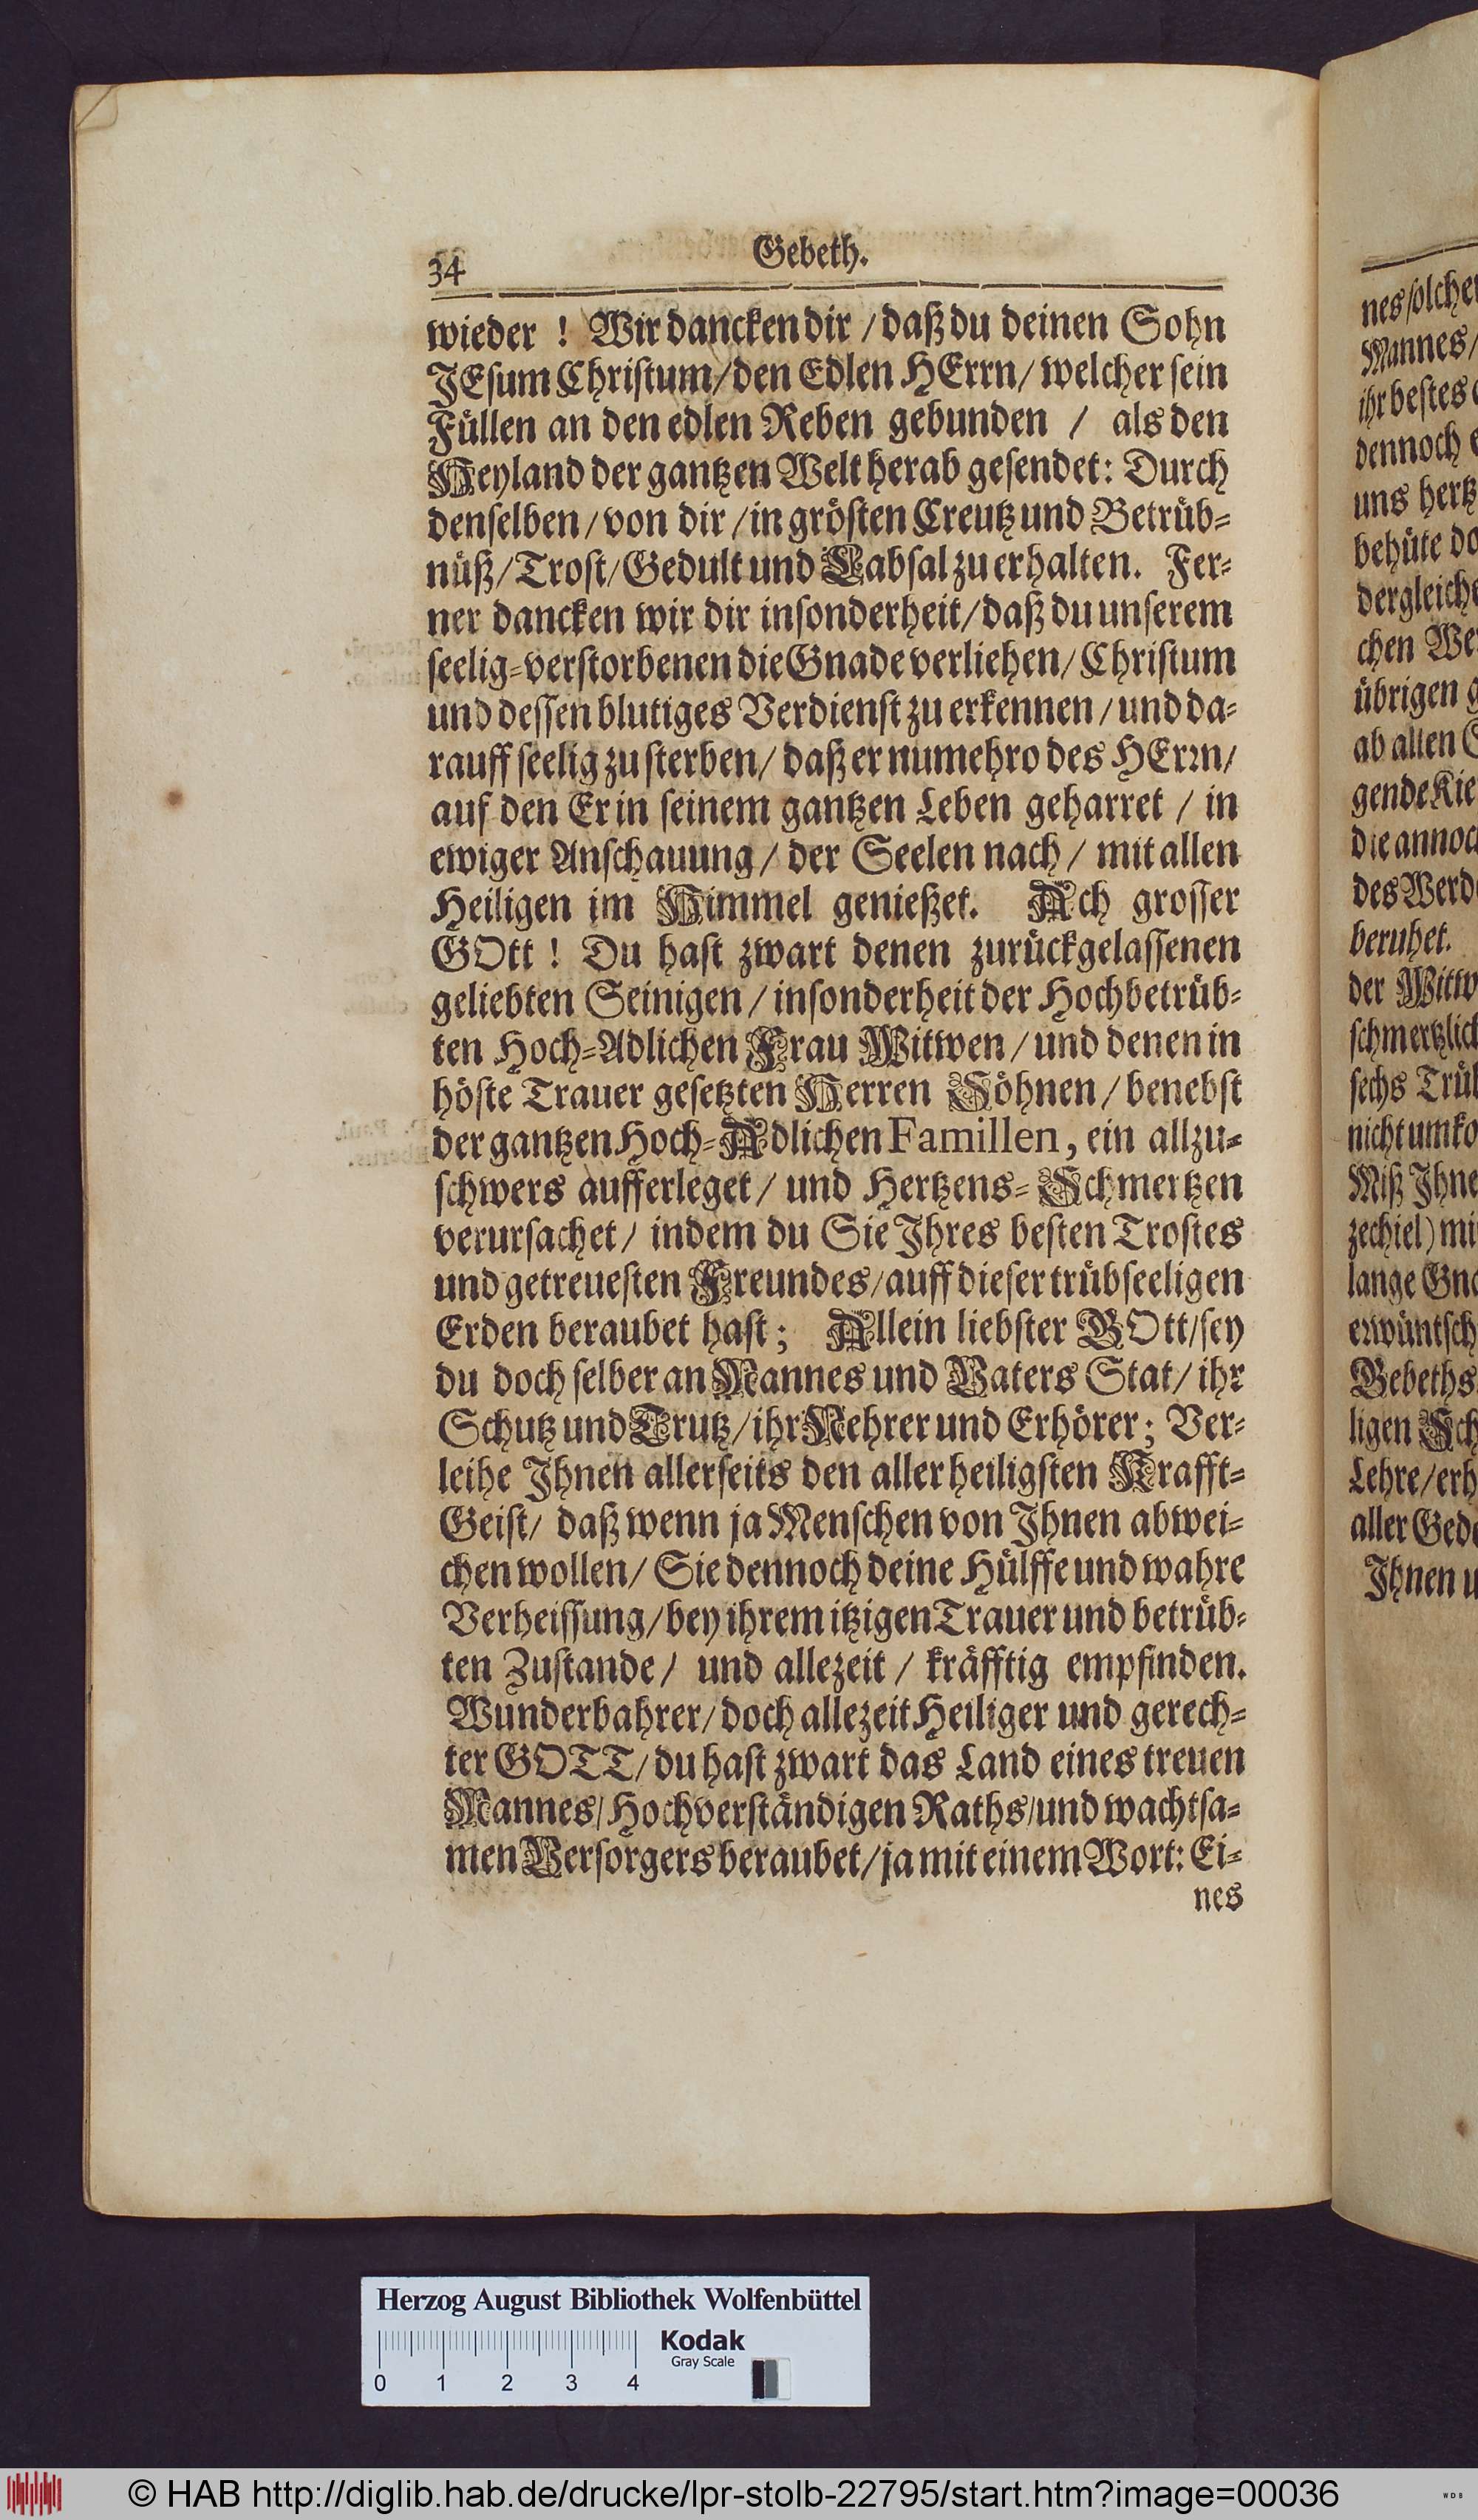 34
Gebeth.
wieder ! Wir dancken dir / daß du deinen Sohn
JEsum Christum/den Edlen HErrn/ welcher sein
Füllen an den edlen Reben gebunden / als den
Heyland der gantzen Welt herab gesendet: Durch
denselben/von dir /in grösten Creutz und Betrüb-
nüß/Trost/Gedult und Labsal zu erhalten. Fer-
ner dancken wir dir insonderheit/daß du unserem
seelig-verstorbenen die Gnade verliehen/Christum
und dessen blutiges Verdienst zu erkennen /und da-
rauff seelig zu sterben/ daß er numehro des HErrn/
auf den Er in seinem gantzen Leben geharret / in
ewiger Anschauung / der Seelen nach / mit allen
Heiligen im Himmel genießet. Ach grosser
GOtt ! Du hast zwart denen zurückgelassenen
geliebten Seinigen / insonderheit der Hochbetrüb-
ten Hoch-Adlichen Frau Witwen /und denen in
höste Trauer gesetzten Herren Söhnen / benebst
der gantzen Hoch-Adlichen Famillen, ein allzu-
schwers aufferleget / und Hertzens-Schmertzen
verursachet / indem du Sie Ihres besten Trostes
und getreuesten Freundes/auff dieser trübseeligen
Erden beraubet hast; Allein liebster GOtt/sey
du doch selber an Mannes und Vaters Stat/ ihr
Schutz und Trutz/ihr Nehrer und Erhörer; Ver-
leihe Ihnen allerseits den allerheiligsten Krafft-
Geist/ daß wenn ja Menschen von Ihnen abwei-
chen wollen/ Sie dennoch deine Hülffe und wahre
Verheissung/bey ihrem itzigen Trauer und betrüb-
ten Zustande/ und allezeit / kräfftig empfinden.
Wunderbahrer/doch allezeit Heiliger und gerech-
ter GOTT/du hast zwart das Land eines treuen
Mannes/Hochverständigen Raths/und wachtsa-
men Versorgers beraubet/ja mit einem Wort: Ei-
nes
nes solcher
Mannes/
ihr bestes
dennoch
uns hertz
behüte
dergleiche
chen We
übrigen g
ab allen
gende Kie
die annoc
des Werd
beruhet.
der Wittw
schmertzlich
sechs Trüb
nicht umko
Miß Ihne
zechiel) mi
lange Gna
erwüntsch
Gebeths
ligen Sch
Lehre/erh
aller Gede
Ihnen u
Herzog August Bibliothek Wolfenbüttel
Kodak
Gray Scale
0 1 2 3 4
© HAB http://diglib.hab.de/drucke/lpr-stolb-22795/start.htm?image=00036
WDB